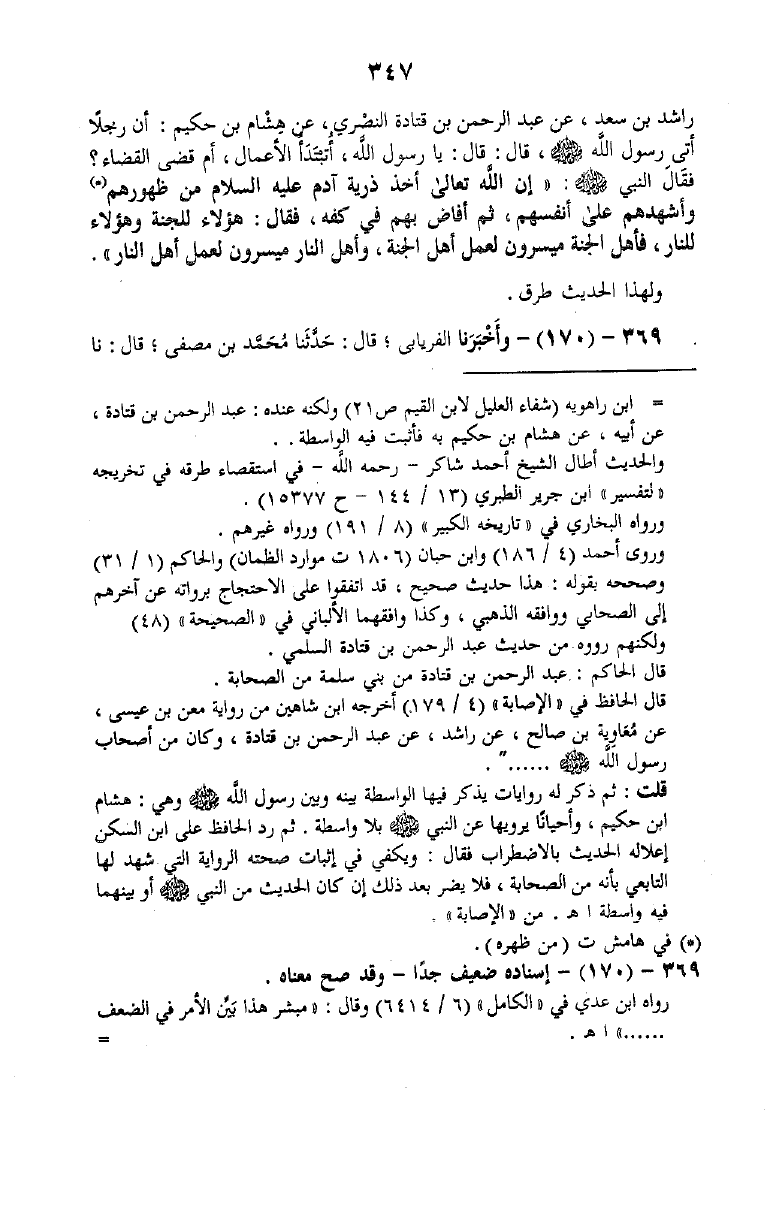 ٣٤٧
راشد بن سعد ، عن عبد الرحمن بن قتادة النصْري ، عن هِشْام بن حكيم : أن رجلًا
أتى رسول اللَّه ﷺ ، قال : قال : يا رسول اللَّه ، أَتُبْتَدَأُ الأعمال ، أم قضى القضاء ؟
فقَالَ النبي ﷺ : « إن اللَّه تعالىٰ أخذ ذرية آدم عليه السلام من ظهورهم(*)
وأشهدهم علىٰ أنفسهم ، ثم أفاض بهم في كفه ، فقال : هؤلاء للجنة وهؤلاء
للنار ، فأهل الجنة ميسرون لعمل أهل الجنة ، وأهل النار ميسرون لعمل أهل النار » .
ولهذا الحديث طرق .
٣٦٩ - (١٧٠) - وأَخْبَرَنا الفريابى ؛ قال : حَدَّثَنا مُحَمَّد بن مصفى ؛ قال : نا
= ابن راهويه (شفاء العليل لابن القيم ص٢١) ولكنه عنده : عبد الرحمن بن قتادة ،
عن أبيه ، عن هشام بن حكيم به فأثبت فيه الواسطة . .
والحديث أطال الشيخ أحمد شاكر - رحمه اللَّه - في استقصاء طرقه في تخريجه
« لتفسير » ابن جرير الطبري (١٣ / ١٤٤ - ح ١٥٣٧٧) .
ورواه البخاري في « تاريخه الكبير » (٨ / ١٩١) ورواه غيرهم .
وروى أحمد (٤ / ١٨٦) وابن حبان (١٨٠٦ ت موارد الظمان) والحاكم (١ / ٣١)
وصححه بقوله : هذا حديث صحيح ، قد اتفقوا على الاحتجاج برواته عن آخرهم
إلى الصحابي ووافقه الذهبي ، وكذا وافقهما الألباني في « الصحيحة » (٤٨)
ولكنهم رووه من حديث عبد الرحمن بن قتادة السلمي .
قال الحاكم : عبد الرحمن بن قتادة من بني سلمة من الصحابة .
قال الحافظ في « الإصابة » (٤ / ١٧٩) أخرجه ابن شاهين من رواية معن بن عيسى ،
عن مُعَاوِية بن صالح ، عن راشد ، عن عبد الرحمن بن قتادة ، وكان من أصحاب
رسول اللَّه ﷺ ......" .
قلت : ثم ذكر له روايات يذكر فيها الواسطة بينه وبين رسول اللَّه ﷺ وهي : هشام
ابن حكيم ، وأحيانًا يرويها عن النبي ﷺ بلا واسطة . ثم رد الحافظ على ابن السكن
إعلاله الحديث بالاضطراب فقال : ويكفي في إثبات صحته الرواية التي شهد لها
التابعي بأنه من الصحابة ، فلا يضر بعد ذلك إن كان الحديث من النبي ﷺ أو بينهما
فيه واسطة ا هـ . من « الإصابة » .
(*) في هامش ت ( من ظهره ) .
٣٦٩ - (١٧٠) - إسناده ضعيف جدًا - وقد صح معناه .
رواه ابن عدي في « الكامل » (٦ / ٦٤١٤) وقال : « مبشر هذا بَيِّن الأمر في الضعف
......» ا هـ .
=